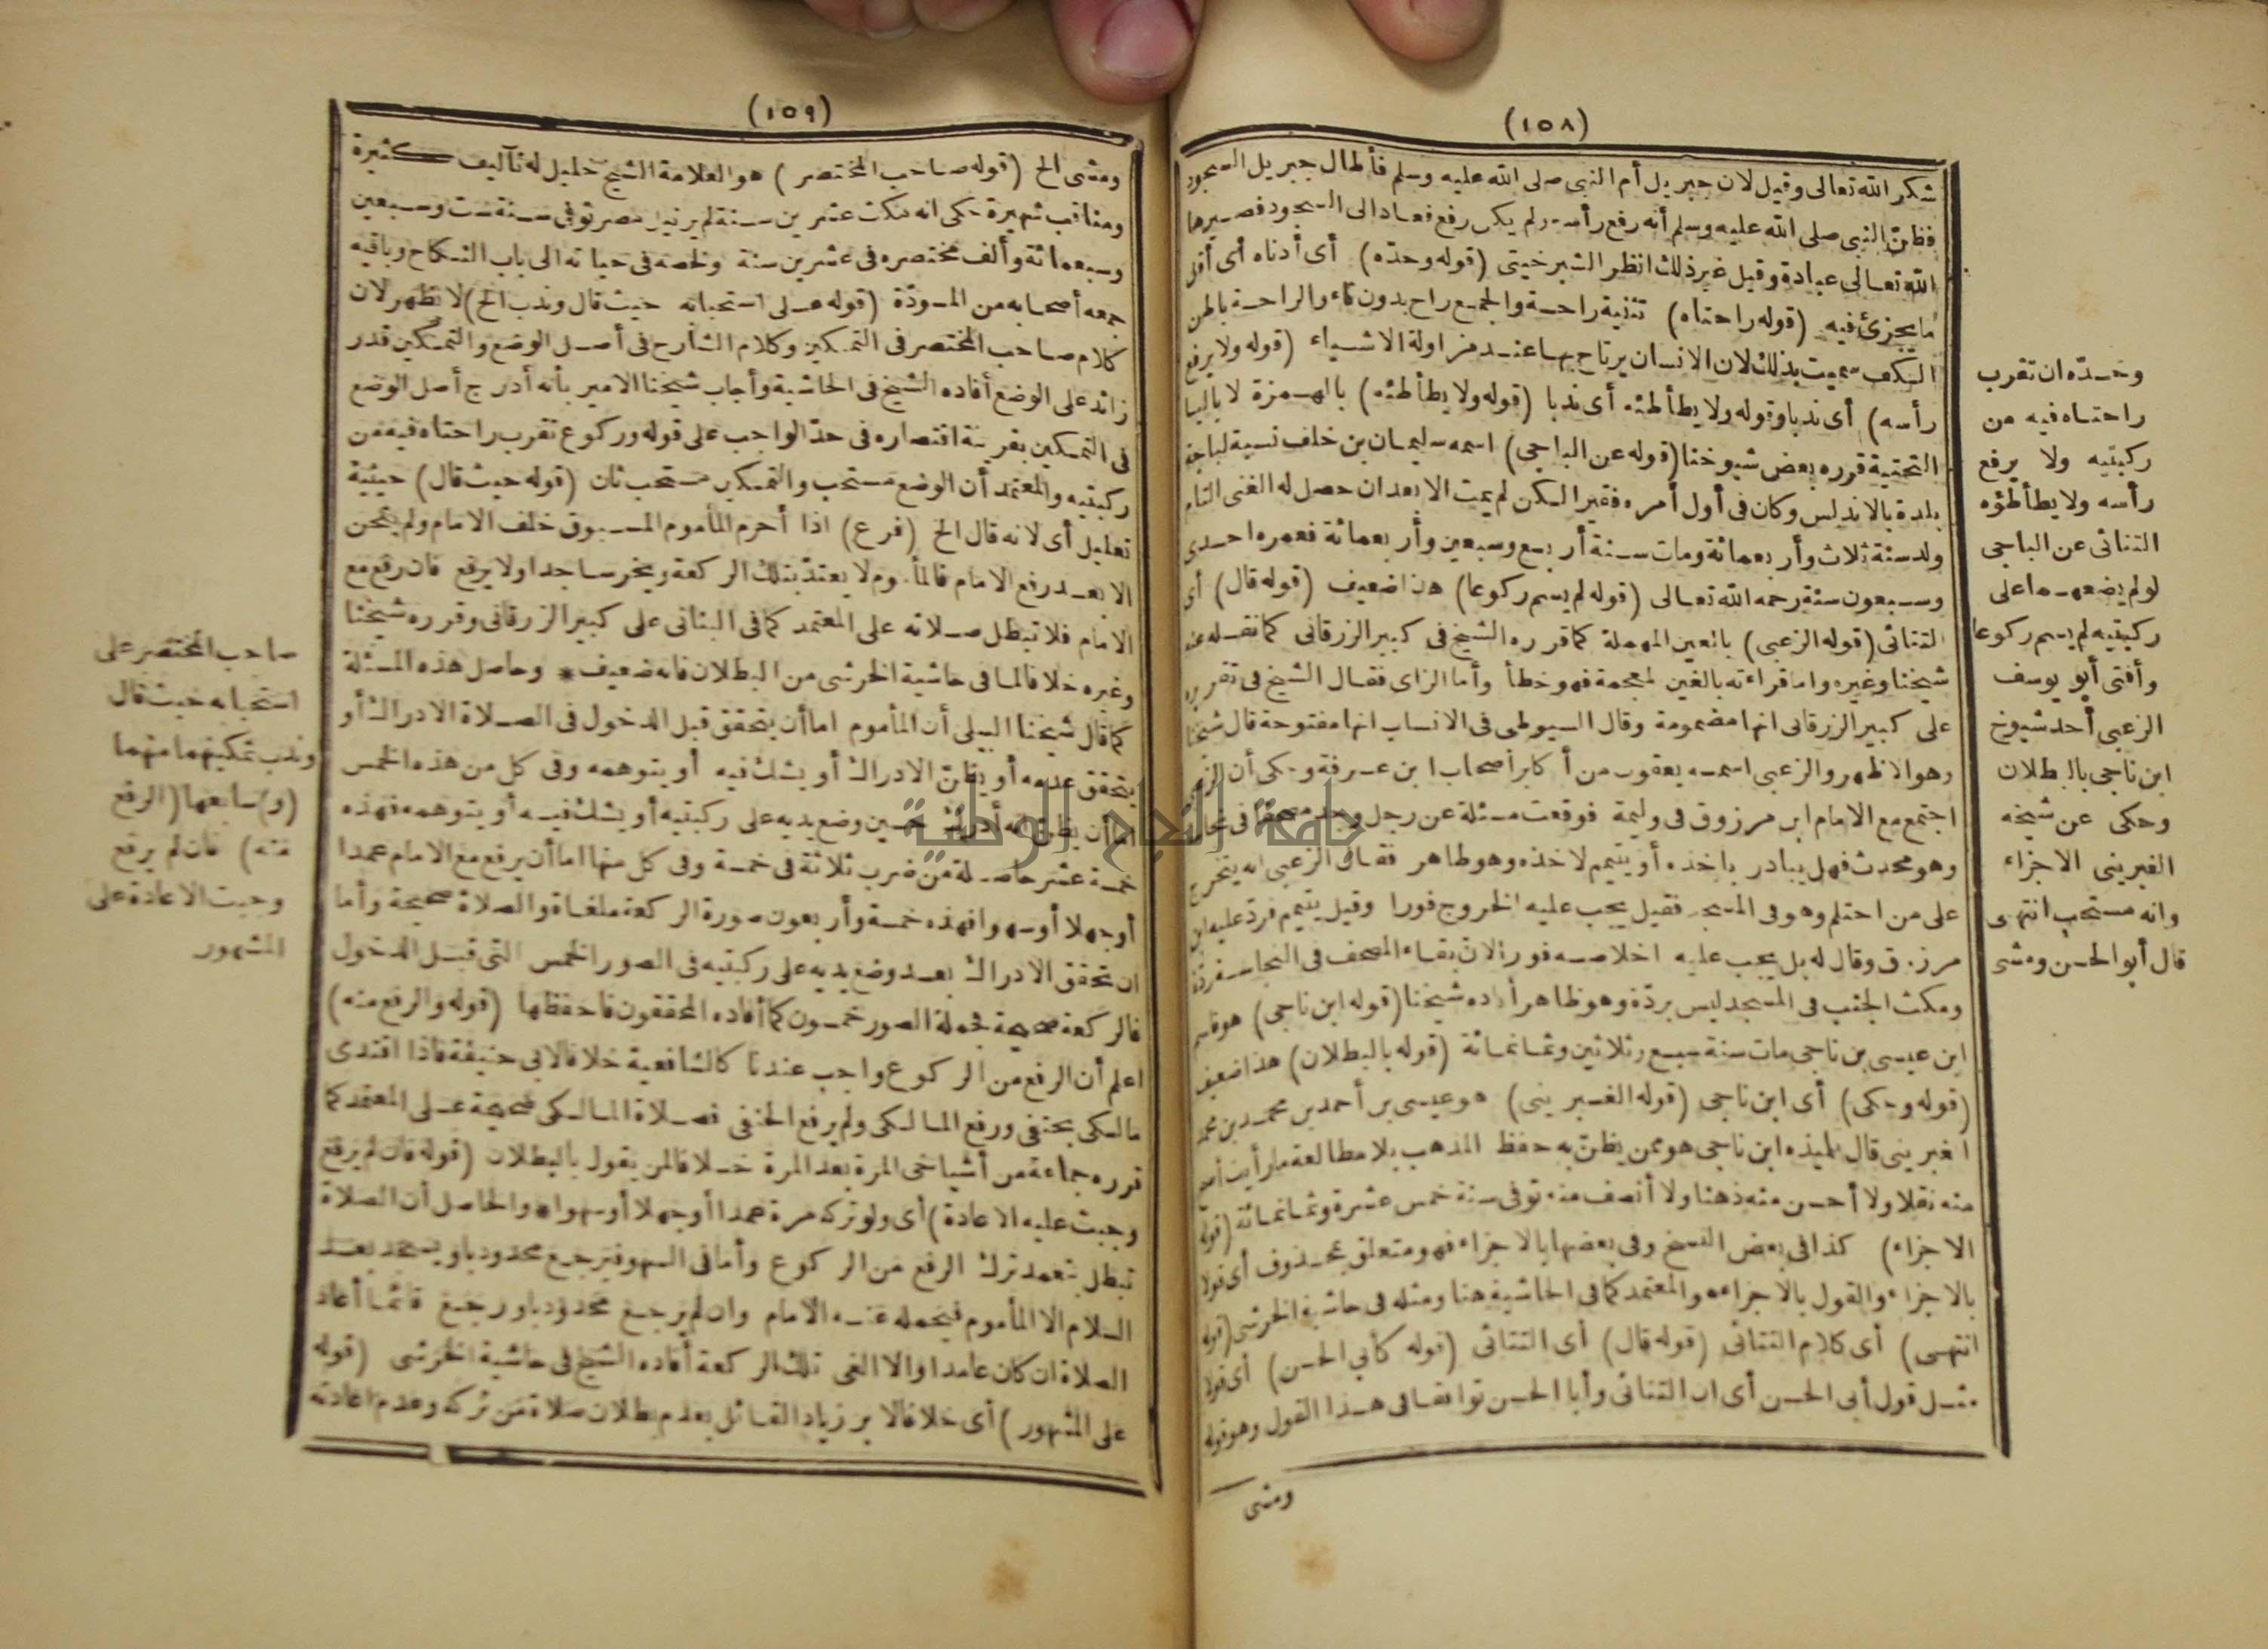 (١٠٨)
شكر الله تعالى وقيل لان جبريل أم النبي صلى الله عليه وسلم فأطال جبريل السجود
فظن النبي صلى الله عليه وسلم أنه رفع رأسه ولم يكن رفع فعاد الى السجود فصيرها
الله تعالى عبادة وقيل غير ذلك انظر الشبرخيتي (قوله وحده) أى أدناه أى أقل
ما يجزئ فيه (قوله راحتاه) تثنية راحة والجمع راح بدون تاء والراحة باطن
الكف سميت بذلك لان الانسان يرتاح بها عند مزاولة الاشياء (قوله ولا يرفع
رأسه) أى ندبا وقوله ولا يطأطئه أى ندبا (قوله ولا يطأطئه) بالهمزة لا بالياء
التحتية قرره بعض شيوخنا (قوله عن الباجى) اسمه سليمان بن خلف نسبة لباجة
بلدة بالاندلس وكان فى أول أمره فقيرا لكن لم يمت الا بعد ان حصل له الغنى التام
ولد سنة ثلاث وأربعمائة ومات سنة أربع وسبعين وأربعمائة فعمره احدى
وسبعون سنة رحمه الله تعالى (قوله لم يسم ركوعا) هذا ضعيف (قوله قال) أى
التتائى (قوله الزعبى) بالعين المهملة كما قرره الشيخ فى كبير الزرقانى كما نقله عنه
شيخنا وغيره واما قراءته بالغين المعجمة فهو خطأ وأما الزاى فقال الشيخ فى تقريره
على كبير الزرقانى انها مضمومة وقال السيوطى فى الانساب انها مفتوحة قال شيخنا
وهو الاظهر والزعبى اسمه يعقوب من أكابر أصحاب ابن عرفة وحكى أن الزعبى
اجتمع مع الامام ابن مرزوق فى وليمة فوقعت مسئلة عن رجل وجد مصحفا فى نجاسة
وهو محدث فهل يبادر باخذه أو يتيمم لاخذه وهو طاهر فقال الزعبى انه يتخرج
على من احتلم وهو فى المسجد فقيل يجب عليه الخروج فورا وقيل يتيمم فرد عليه ابن
مرزوق وقال له بل يجب عليه اخلاصه فورا لان بقاء المصحف فى النجاسة ردة
ومكث الجنب فى المسجد ليس بردة وهو ظاهر أفاده شيخنا (قوله ابن ناجى) هو قاسم
ابن عيسى بن ناجى مات سنة سبع وثلاثين وثمانمائة (قوله بالبطلان) هذا ضعيف
(قوله وحكى) أى ابن ناجى (قوله الغبرينى) هو عيسى بن أحمد بن محمد بن محمد
الغبرينى قال تلميذه ابن ناجى هو ممن يظن به حفظ المذهب بلا مطالعة ما رأيت أصح
منه نقلا ولا أحسن منه ذهنا ولا أنصف منه توفى سنة خمس عشرة وثمانمائة (قوله
الاجزاء) كذا فى بعض النسخ وفى بعضها بالاجزاء فهو متعلق بمحذوف أى قولا
بالاجزاء والقول بالاجزاء هو المعتمد كما فى الحاشية هنا ومثله فى حاشية الخرشى (قوله
انتهى) أى كلام التتائى (قوله قال) أى التتائى (قوله كأبي الحسن) أى قولا
مثل قول أبى الحسن أى ان التتائى وأبا الحسن توافقا فى هذا القول وهو قوله
ومشى
وحده ان تقرب
راحتاه فيه من
ركبتيه ولا يرفع
رأسه ولا يطأطئه
التتائى عن الباجى
لو لم يضعهما على
ركبتيه لم يسم ركوعا
وأفتى أبو يوسف
الزعبى أحد شيوخ
ابن ناجى بالبطلان
وحكى عن شيخه
الغبرينى الاجزاء
وانه مستحب انتهى
قال أبو الحسن ومشى
(١٠٩)
ومشى الخ (قوله صاحب المختصر) هو العلامة الشيخ خليل له تآليف كثيرة
ومناقب شهيرة حكى انه مكث عشرين سنة لم ير نيل مصر توفى سنة ست وسبعين
وسبعمائة وألف مختصره فى عشرين سنة ولخصه فى حياته الى باب النكاح وباقيه
جمعه أصحابه من المسودة (قوله على استحبابه حيث قال وندب الخ) لا يظهر لان
كلام صاحب المختصر فى التمكين وكلام الشارح فى أصل الوضع والتمكين قدر
زائد على الوضع أفاده الشيخ فى الحاشية وأجاب شيخنا الامير بأنه أدرج أصل الوضع
فى التمكين بقرينة اقتصاره فى حد الواجب على قوله وركوع تقرب راحتاه فيه من
ركبتيه والمعتمد أن الوضع مستحب والتمكين مستحب ثان (قوله حيث قال) حيثية
تعليل أى لانه قال الخ (فرع) اذا أحرم المأموم المسبوق خلف الامام ولم ينحن
الا بعد رفع الامام فالمأموم لا يعتد بتلك الركعة ويخر ساجدا ولا يرفع فان رفع مع
الامام فلا تبطل صلاته على المعتمد كما فى البنانى على كبير الزرقانى وقرره شيخنا
وغيره خلافا لما فى حاشية الخرشى من البطلان فانه ضعيف * وحاصل هذه المسئلة
كما قال شيخنا البيلى أن المأموم اما أن يتحقق قبل الدخول فى الصلاة الادراك أو
يتحقق عدمه أو يظن الادراك أو يشك فيه أو يتوهمه وفى كل من هذه الخمس
اما أن يظن انه أدرك حين وضع يديه على ركبتيه أو يشك فيه أو يتوهمه فهذه
خمسة عشر حاصلة من ضرب ثلاثة فى خمسة وفى كل منها اما أن يرفع مع الامام عمدا
أو جهلا أو سهوا فهذه خمسة وأربعون صورة الركعة ملغاة والصلاة صحيحة وأما
ان تحقق الادراك بعد وضع يديه على ركبتيه فى الصور الخمس التى قبل الدخول
فالركعة صحيحة فجملة الصور خمسون كما أفاده المحققون فاحفظها (قوله والرفع منه)
اعلم أن الرفع من الركوع واجب عندنا كالشافعية خلافا لابى حنيفة فاذا اقتدى
مالكى بحنفى ورفع المالكى ولم يرفع الحنفى فصلاة المالكى صحيحة على المعتمد كما
قرره جماعة من أشياخى المرة بعد المرة خلافا لمن يقول بالبطلان (قوله فان لم يرفع
وجبت عليه الاعادة) أى ولو تركه مرة عمدا أو جهلا أو سهوا * والحاصل أن الصلاة
تبطل بتعمد ترك الرفع من الركوع وأما فى السهو فيرجع محدودبا ويسجد بعد
السلام الا المأموم فيحمله عنه الامام وان لم يرجع محدودبا ورجع قائما أعاد
الصلاة ان كان عامدا والا الغى تلك الركعة أفاده الشيخ فى حاشية الخرشى (قوله
على المشهور) أى خلافا لابن زياد القائل بعدم بطلان صلاة من تركه وعدم اعادته
صاحب المختصر على
استحبابه حيث قال
وندب تمكينهما منهما
(و) سابعها (الرفع
منه) فان لم يرفع
وجبت الاعادة على
المشهور
جامعة النجاح الوطنية